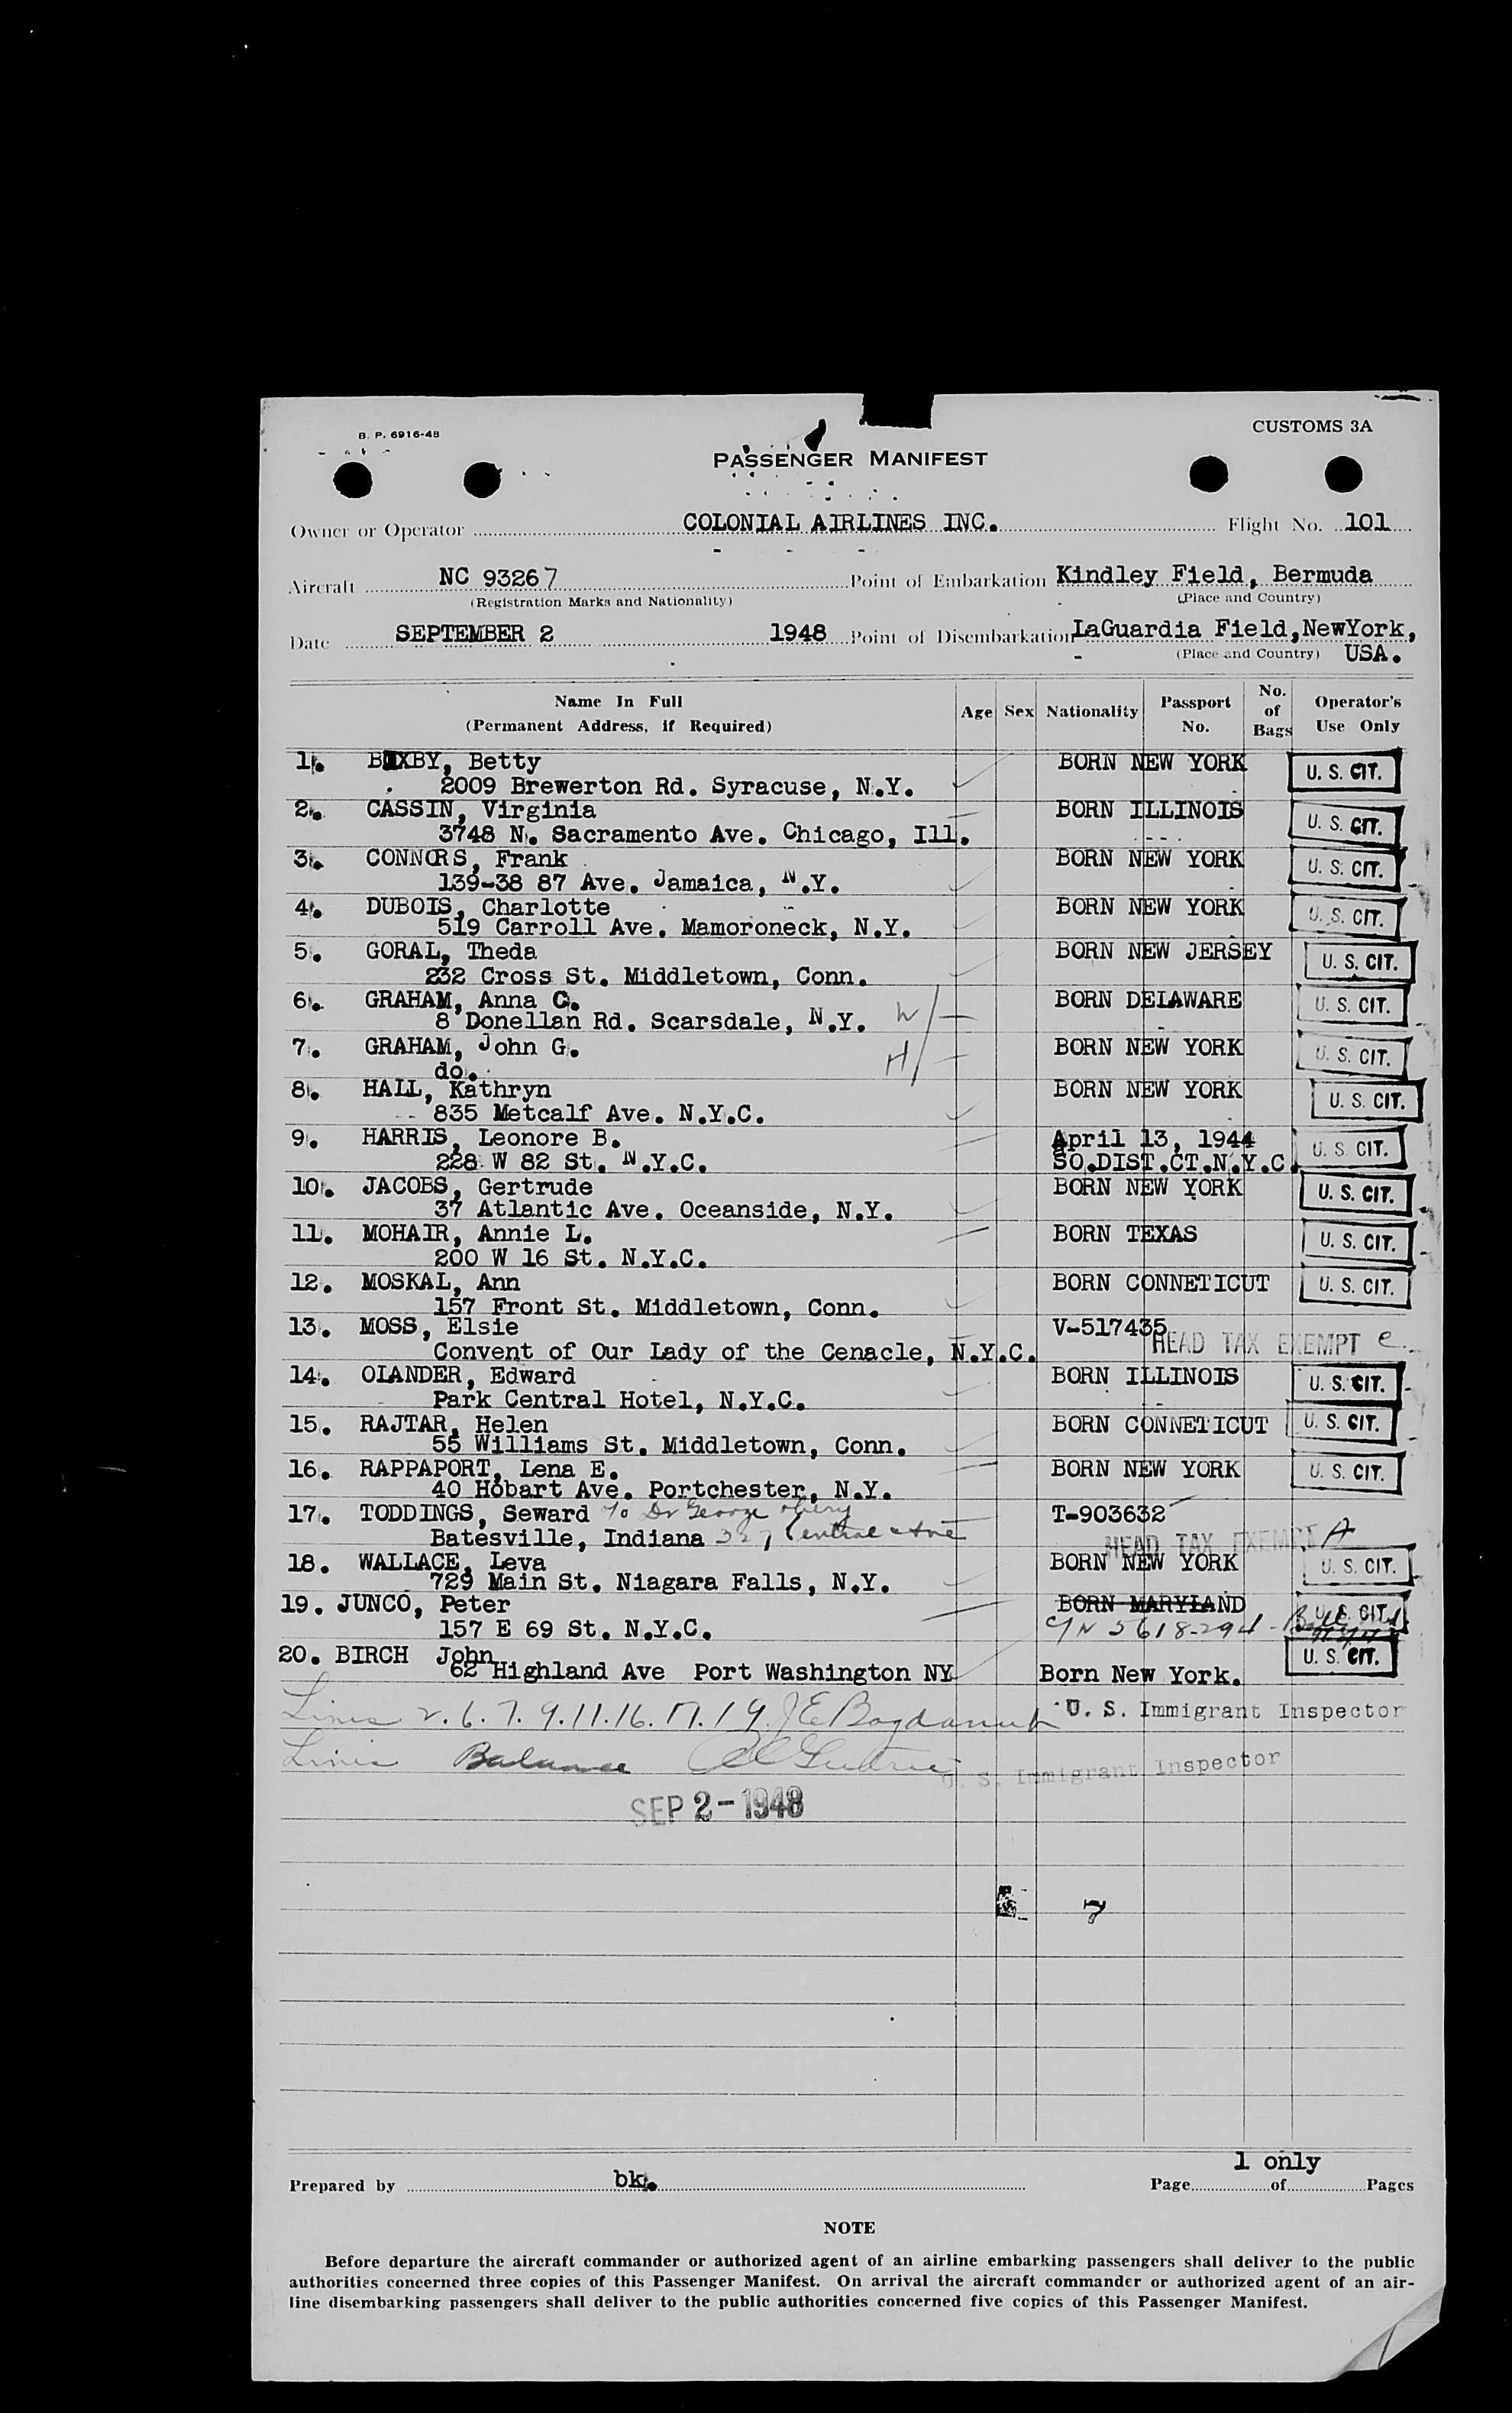 B. P. 6916-48
CUSTOMS 3A
PASSENGER MANIFEST
Owner or Operator COLONIAL AIRLINES INC. Flight No. 101
Aircraft NC 93267 Point of Embarkation Kindley Field, Bermuda
(Registration Marks and Nationality) (Place and Country)
Date SEPTEMBER 2 1948 Point of Disembarkation LaGuardia Field,NewYork,
(Place and Country) USA.
Name In Full (Permanent Address, if Required) Age Sex Nationality Passport No. No. of Bags Operator's Use Only
1. BIXBY, Betty BORN NEW YORK U. S. CIT.
2009 Brewerton Rd. Syracuse, N.Y.
2. CASSIN, Virginia BORN ILLINOIS U. S. CIT.
3748 N. Sacramento Ave. Chicago, Ill.
3. CONNORS, Frank BORN NEW YORK U. S. CIT.
139-38 87 Ave. Jamaica, N.Y.
4. DUBOIS, Charlotte BORN NEW YORK U. S. CIT.
519 Carroll Ave. Mamoroneck, N.Y.
5. GORAL, Theda BORN NEW JERSEY U. S. CIT.
232 Cross St. Middletown, Conn.
6. GRAHAM, Anna C. BORN DELAWARE U. S. CIT.
8 Donellan Rd. Scarsdale, N.Y. W/
7. GRAHAM, John G. BORN NEW YORK U. S. CIT.
do. H/
8. HALL, Kathryn BORN NEW YORK U. S. CIT.
835 Metcalf Ave. N.Y.C.
9. HARRIS, Leonore B. April 13, 1944 U. S. CIT.
228 W 82 St. N.Y.C. SO.DIST.CT.N.Y.C.
10. JACOBS, Gertrude BORN NEW YORK U. S. CIT.
37 Atlantic Ave. Oceanside, N.Y.
11. MOHAIR, Annie L. BORN TEXAS U. S. CIT.
200 W 16 St. N.Y.C.
12. MOSKAL, Ann BORN CONNETICUT U. S. CIT.
157 Front St. Middletown, Conn.
13. MOSS, Elsie V-517435 HEAD TAX EXEMPT e
Convent of Our Lady of the Cenacle, N.Y.C.
14. OLANDER, Edward BORN ILLINOIS U. S. CIT.
Park Central Hotel, N.Y.C.
15. RAJTAR, Helen BORN CONNETICUT U. S. CIT.
55 Williams St. Middletown, Conn.
16. RAPPAPORT, Lena E. BORN NEW YORK U. S. CIT.
40 Hobart Ave. Portchester, N.Y.
17. TODDINGS, Seward Dr George T-903632
Batesville, Indiana 327 Central Ave HEAD TAX EXEMPT A
18. WALLACE, Leva BORN NEW YORK U. S. CIT.
729 Main St. Niagara Falls, N.Y.
19. JUNCO, Peter BORN MARYLAND U. S. CIT.
157 E 69 St. N.Y.C. 5618294
20. BIRCH John U. S. CIT.
62 Highland Ave Port Washington NY Born New York.
Lines 2. 6. 7. 9. 11. 16. 17. 19. U. S. Immigrant Inspector
Lines Balance U. S. Immigrant Inspector
SEP 2 - 1948
7
1 only
Prepared by bk. Page of Pages
NOTE
Before departure the aircraft commander or authorized agent of an airline embarking passengers shall deliver to the public
authorities concerned three copies of this Passenger Manifest. On arrival the aircraft commander or authorized agent of an air-
line disembarking passengers shall deliver to the public authorities concerned five copies of this Passenger Manifest.